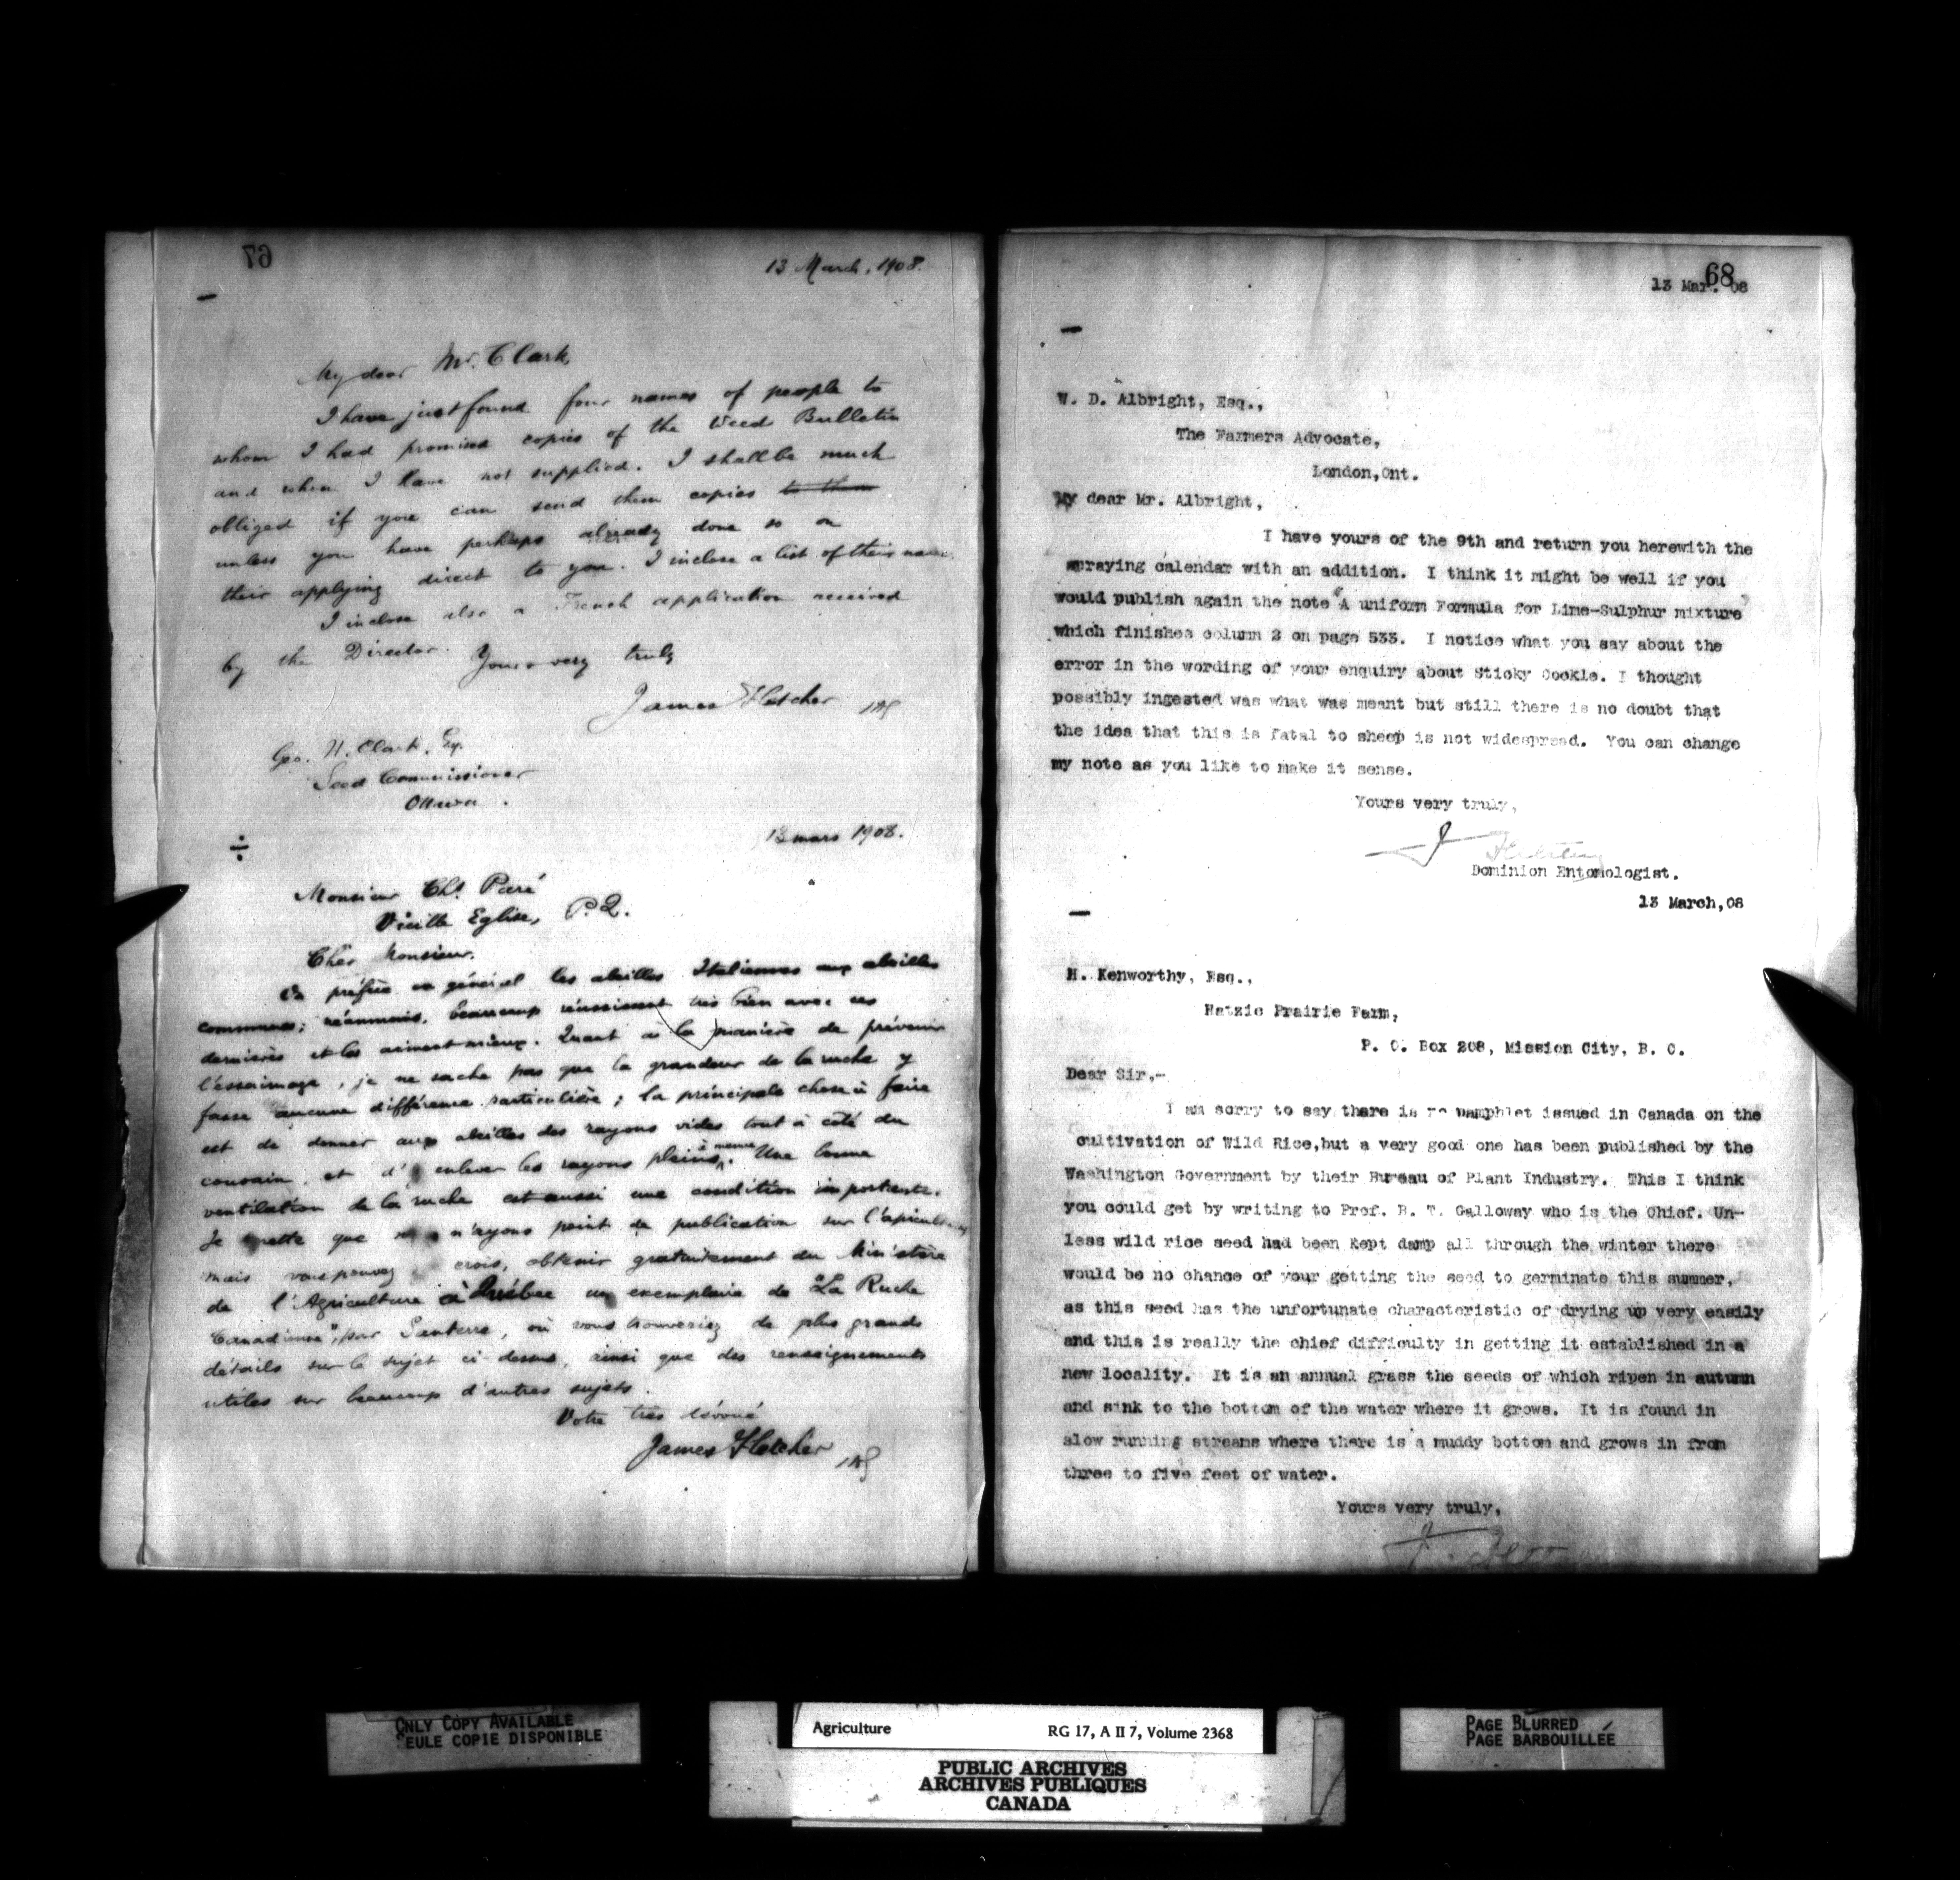 67
13 March, 1908.
My dear Mr. Clark,
I have just found four names of people to
whom I had promised copies of the Weed Bulletin
and when I have not supplied. I shall be much
obliged if you can send them copies to them
unless you have perhaps already done so on
their applying direct to you. I inclose a list of their names
I inclose also a French application received
by the Director. Yours very truly
James Fletcher
Geo. H. Clark, Esq.
Seed Commissioner
Ottawa.
13 mars 1908.
Monsieur Chs. Paré
Vieille Eglise, P.Q.
Cher Monsieur,
On préfère en général les abeilles Italiennes aux abeilles
communes; néanmoins, beaucoup réussissent très bien avec ces
dernières et les aiment mieux. Quant à la manière de prévenir
l'essaimage, je ne sache pas que la grandeur de la ruche y
fasse aucune différence particulière; la principale chose à faire
est de donner aux abeilles des rayons vides tout à côté du
couvain, et d'enlever les rayons pleins à mesure. Une bonne
ventilation de la ruche est aussi une condition importante.
Je regrette que n'ayons point de publication sur l'apiculture
mais vous pouvez crois, obtenir gratuitement du Ministère
de l'Agriculture à Québec un exemplaire de "La Ruche
Canadienne", par Santerre, où vous trouveriez de plus grands
détails sur le sujet ci-dessus, ainsi que des renseignements
utiles sur beaucoup d'autres sujets.
Votre très dévoué
James Fletcher
68
13 Mar. 08
W. D. Albright, Esq.,
The Farmers Advocate,
London,Ont.
My dear Mr. Albright,
I have yours of the 9th and return you herewith the
spraying calendar with an addition. I think it might be well if you
would publish again the note "A uniform Formula for Lime-Sulphur mixture"
which finishes column 2 on page 533. I notice what you say about the
error in the wording of your enquiry about Sticky Cockle. I thought
possibly ingested was what was meant but still there is no doubt that
the idea that this is fatal to sheep is not widespread. You can change
my note as you like to make it sense.
Yours very truly,
J Fletcher
Dominion Entomologist.
13 March,08
H. Kenworthy, Esq.,
Hatzic Prairie Farm,
P. O. Box 208, Mission City, B. C.
Dear Sir,-
I am sorry to say there is no pamphlet issued in Canada on the
cultivation of Wild Rice,but a very good one has been published by the
Washington Government by their Bureau of Plant Industry. This I think
you could get by writing to Prof. B. T. Galloway who is the Chief. Un-
less wild rice seed had been kept damp all through the winter there
would be no chance of your getting the seed to germinate this summer,
as this seed has the unfortunate characteristic of drying up very easily
and this is really the chief difficulty in getting it established in a
new locality. It is an annual grass the seeds of which ripen in autumn
and sink to the bottom of the water where it grows. It is found in
slow running streams where there is a muddy bottom and grows in from
three to five feet of water.
Yours very truly,
ONLY COPY AVAILABLE
SEULE COPIE DISPONIBLE
Agriculture RG 17, A II 7, Volume 2368
PUBLIC ARCHIVES
ARCHIVES PUBLIQUES
CANADA
PAGE BLURRED
PAGE BARBOUILLÉE